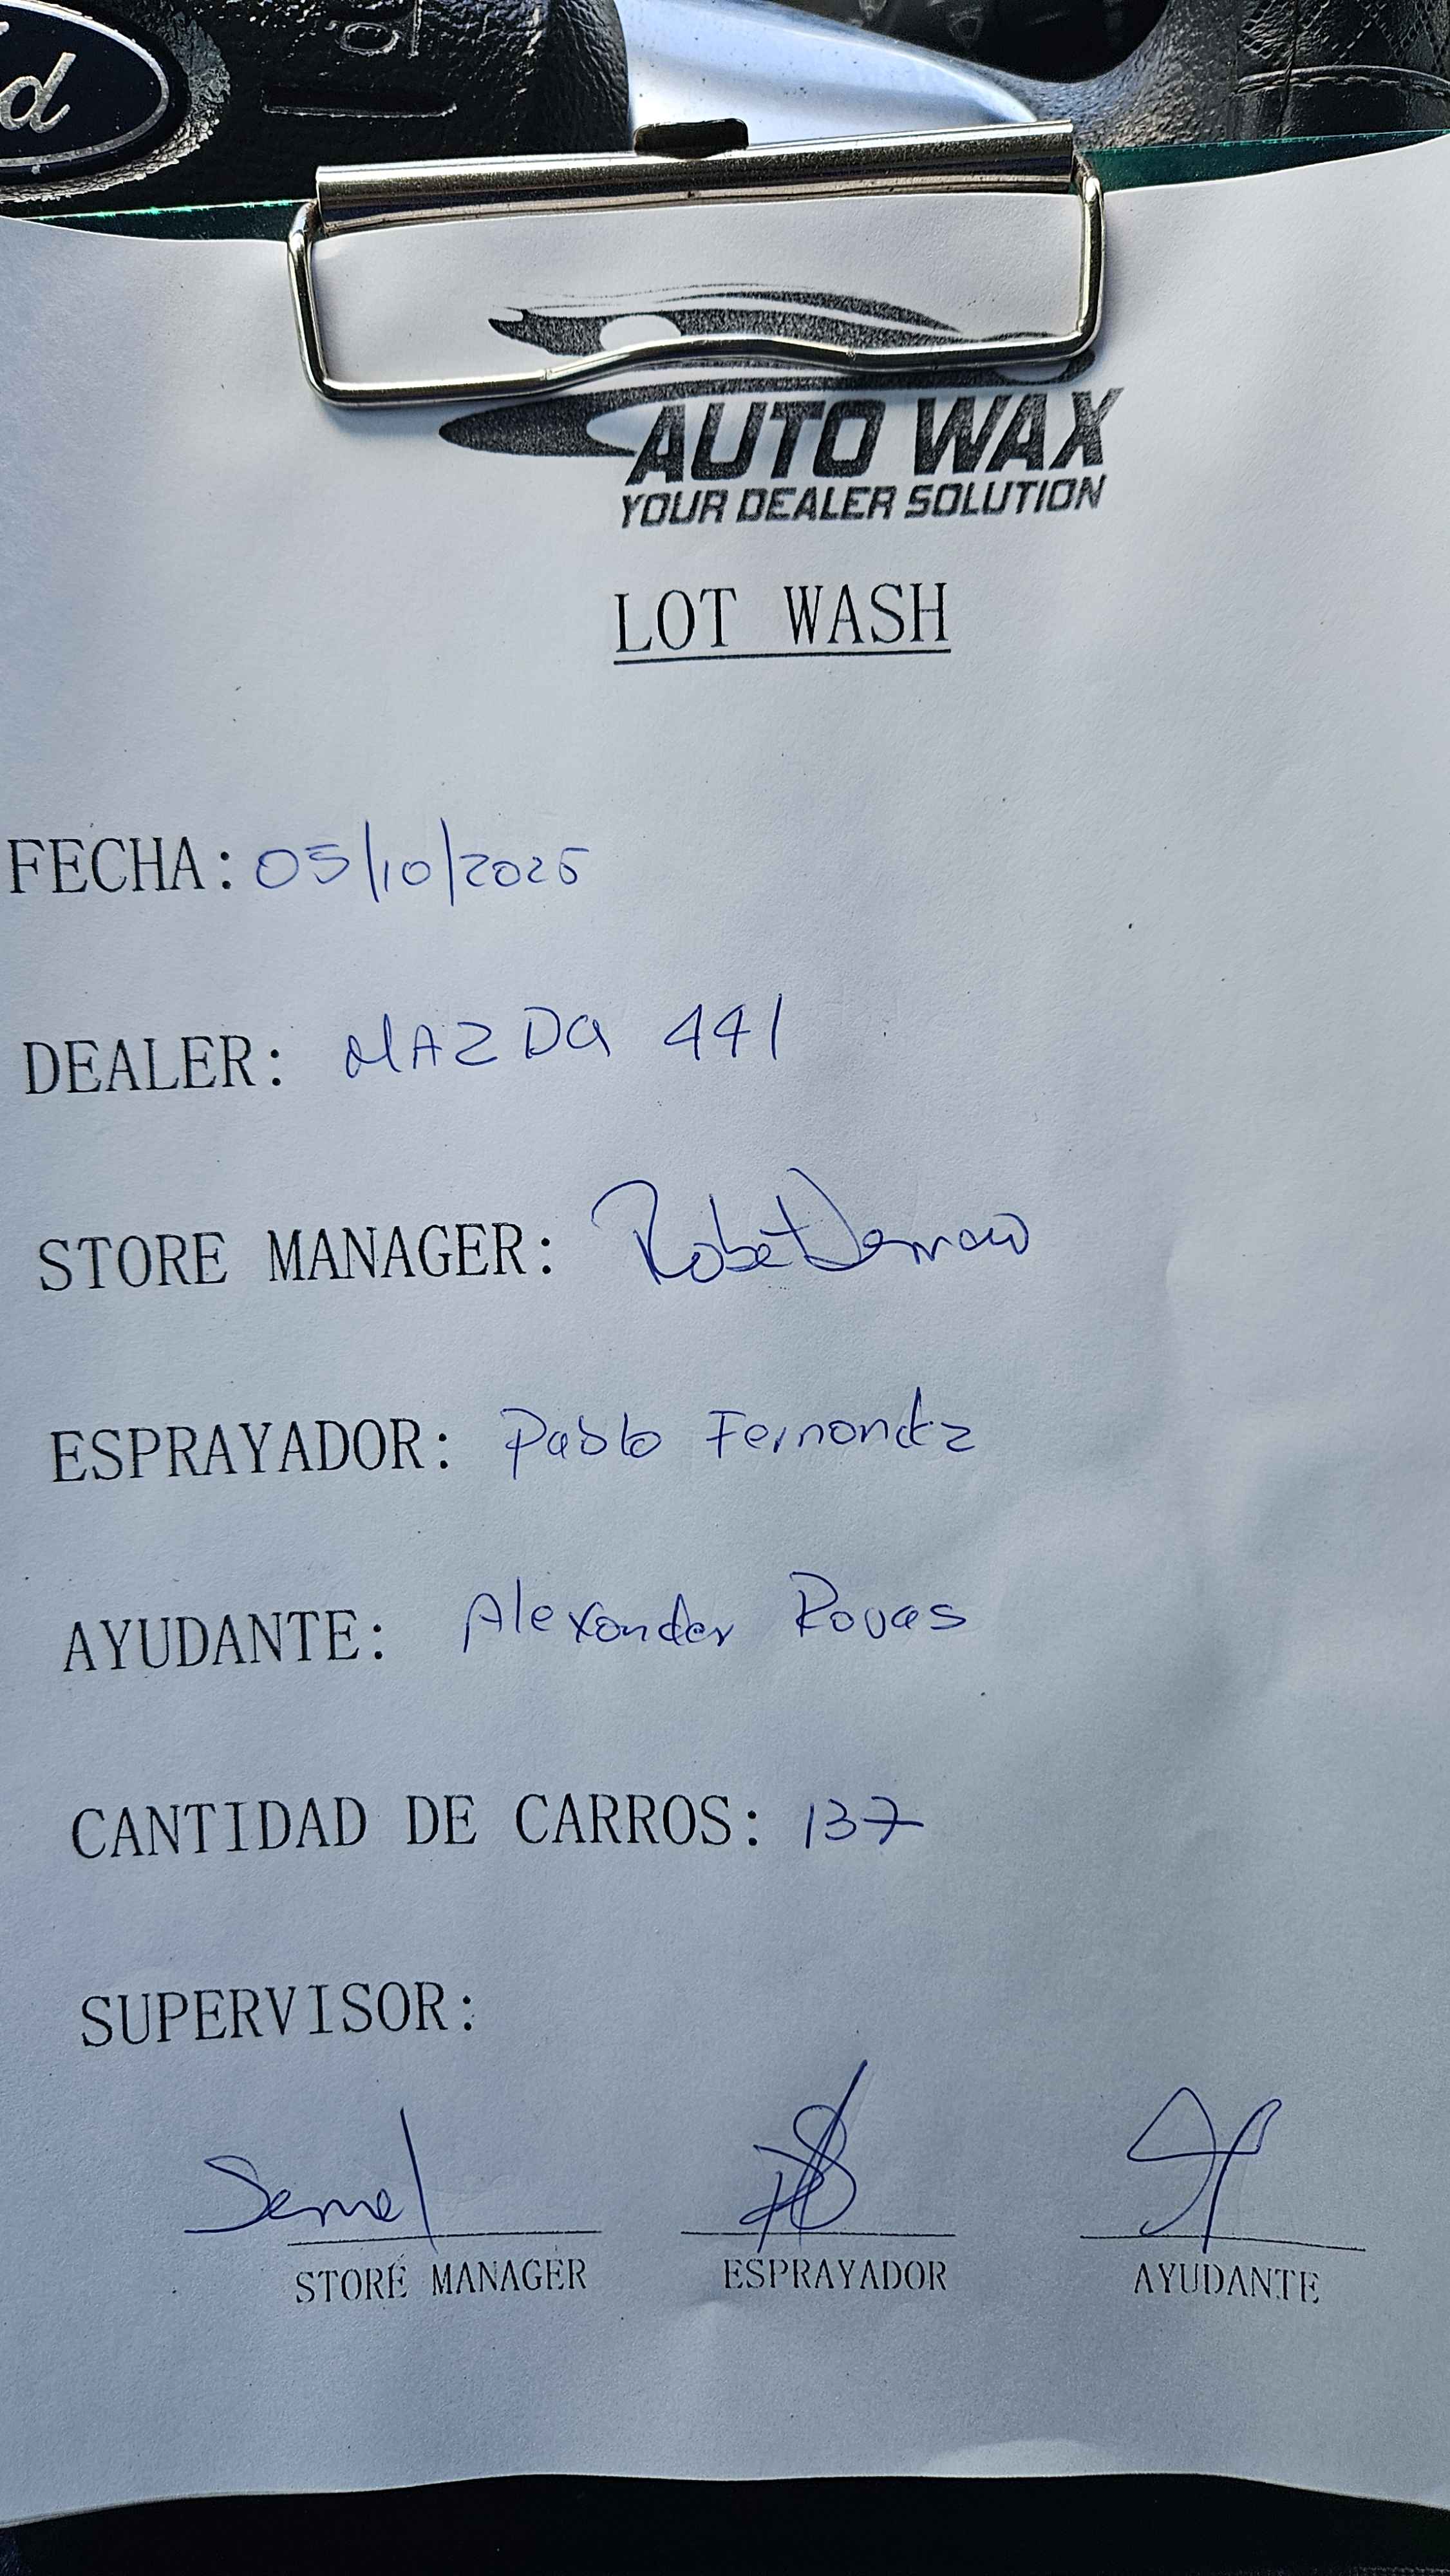 d
AUTO WAX
YOUR DEALER SOLUTION
LOT WASH
FECHA: 05/10/2025
DEALER: MAZDA 441
STORE MANAGER: Robert
ESPRAYADOR: Pablo Fernandez
AYUDANTE: Alexander Rovas
CANTIDAD DE CARROS: 137
SUPERVISOR:
STORE MANAGER ESPRAYADOR AYUDANTE